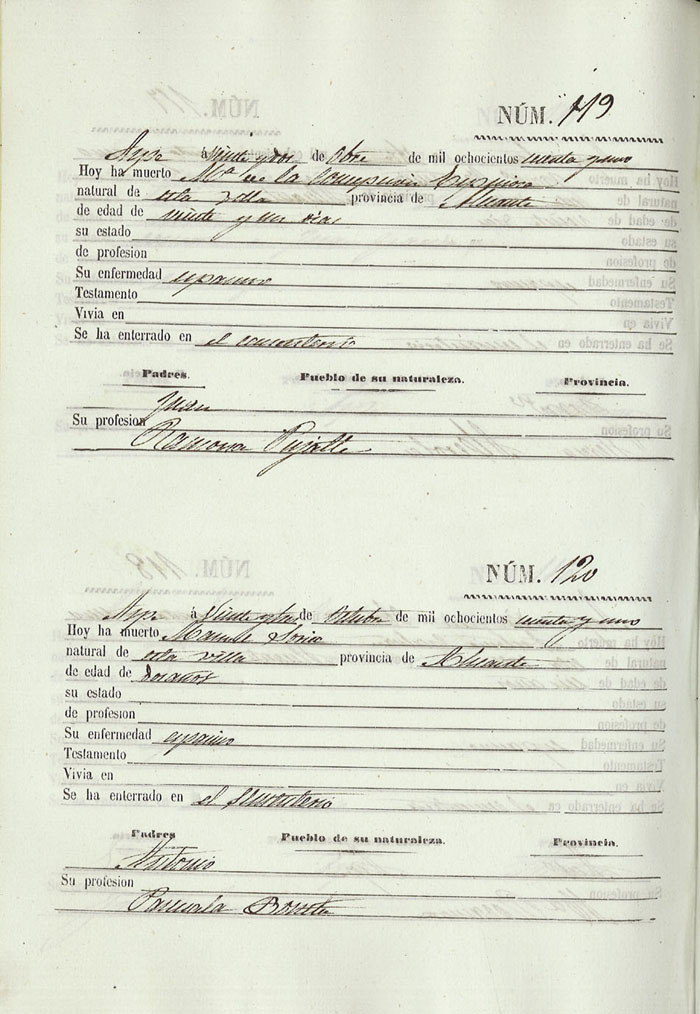 NÚM. 119
Aspe á veinte y dos de Obre de mil ochocientos y uno
Hoy ha muerto Mª de la
natural de esta villa provincia de Alicante
de edad de veinte y un dias
su estado
de profesion
Su enfermedad espasmo
Testamento
Vivia en
Se ha enterrado en el cementerio
Padres. Pueblo de su naturaleza. Provincia.
Juan
Su profesion
Ramona Pujalte
NÚM. 120
Aspe á Veinte y de Octubre de mil ochocientos y uno
Hoy ha muerto Manuel Soria
natural de esta villa provincia de Alicante
de edad de dos años
su estado
de profesion
Su enfermedad espasmo
Testamento
Vivia en
Se ha enterrado en el Sementerio
Padres Pueblo de su naturaleza. Provincia.
Antonio
Su profesion
Pascuala